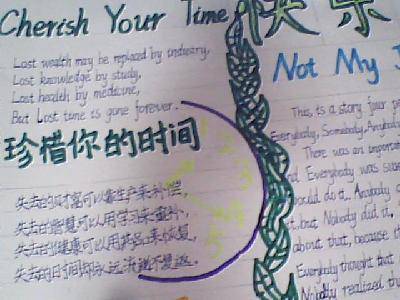 Cherish Your Time
Lost wealth may be replaced by industry,
Lost knowledge by study,
Lost health by medicine,
But Lost time is gone forever.
珍惜你的时间
失去的财富可以靠生产来补偿,
失去的智慧可以用学习来重补,
失去的健康可以用药品来恢复,
失去的时间却永远流逝不复返.
快乐
Not My J
This is a story four p
Everybody, Somebody, Anybody
There was an important
d Everybody was su
would do it. Anybody c
but Nobody did it.
about that, because th
Everybody thought that
Nobody realized th